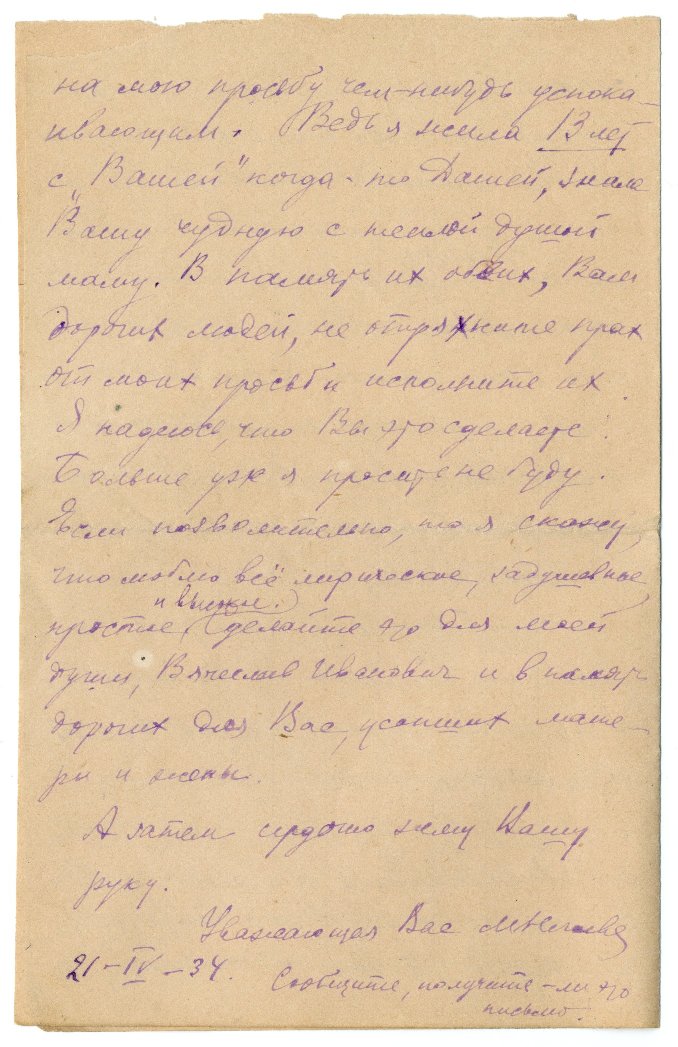 на мою просьбу чем-нибудь успока-
ивающим. Ведь я жила 13 лет
с "Вашей" когда-то Дашей, знала
Вашу чудную с теплой душой
маму. В память их обеих, Вам
дорогих людей, не отряхните прах
от моих просьб и исполните их.
Я надеюсь, что Вы это сделаете.
Больше уж я просить не буду.
Если позволительно, то я скажу,
что люблю всё лирическое, задушевное,
простые, Сделайте это для моей
души, Вячеслав Иванович и в память
дорогих для Вас, усопших мате-
ри и жены.
А затем сердечно жму Вашу
руку.
Уважающая Вас
21-IV-34. Сообщите, получите-ли это
письмо.